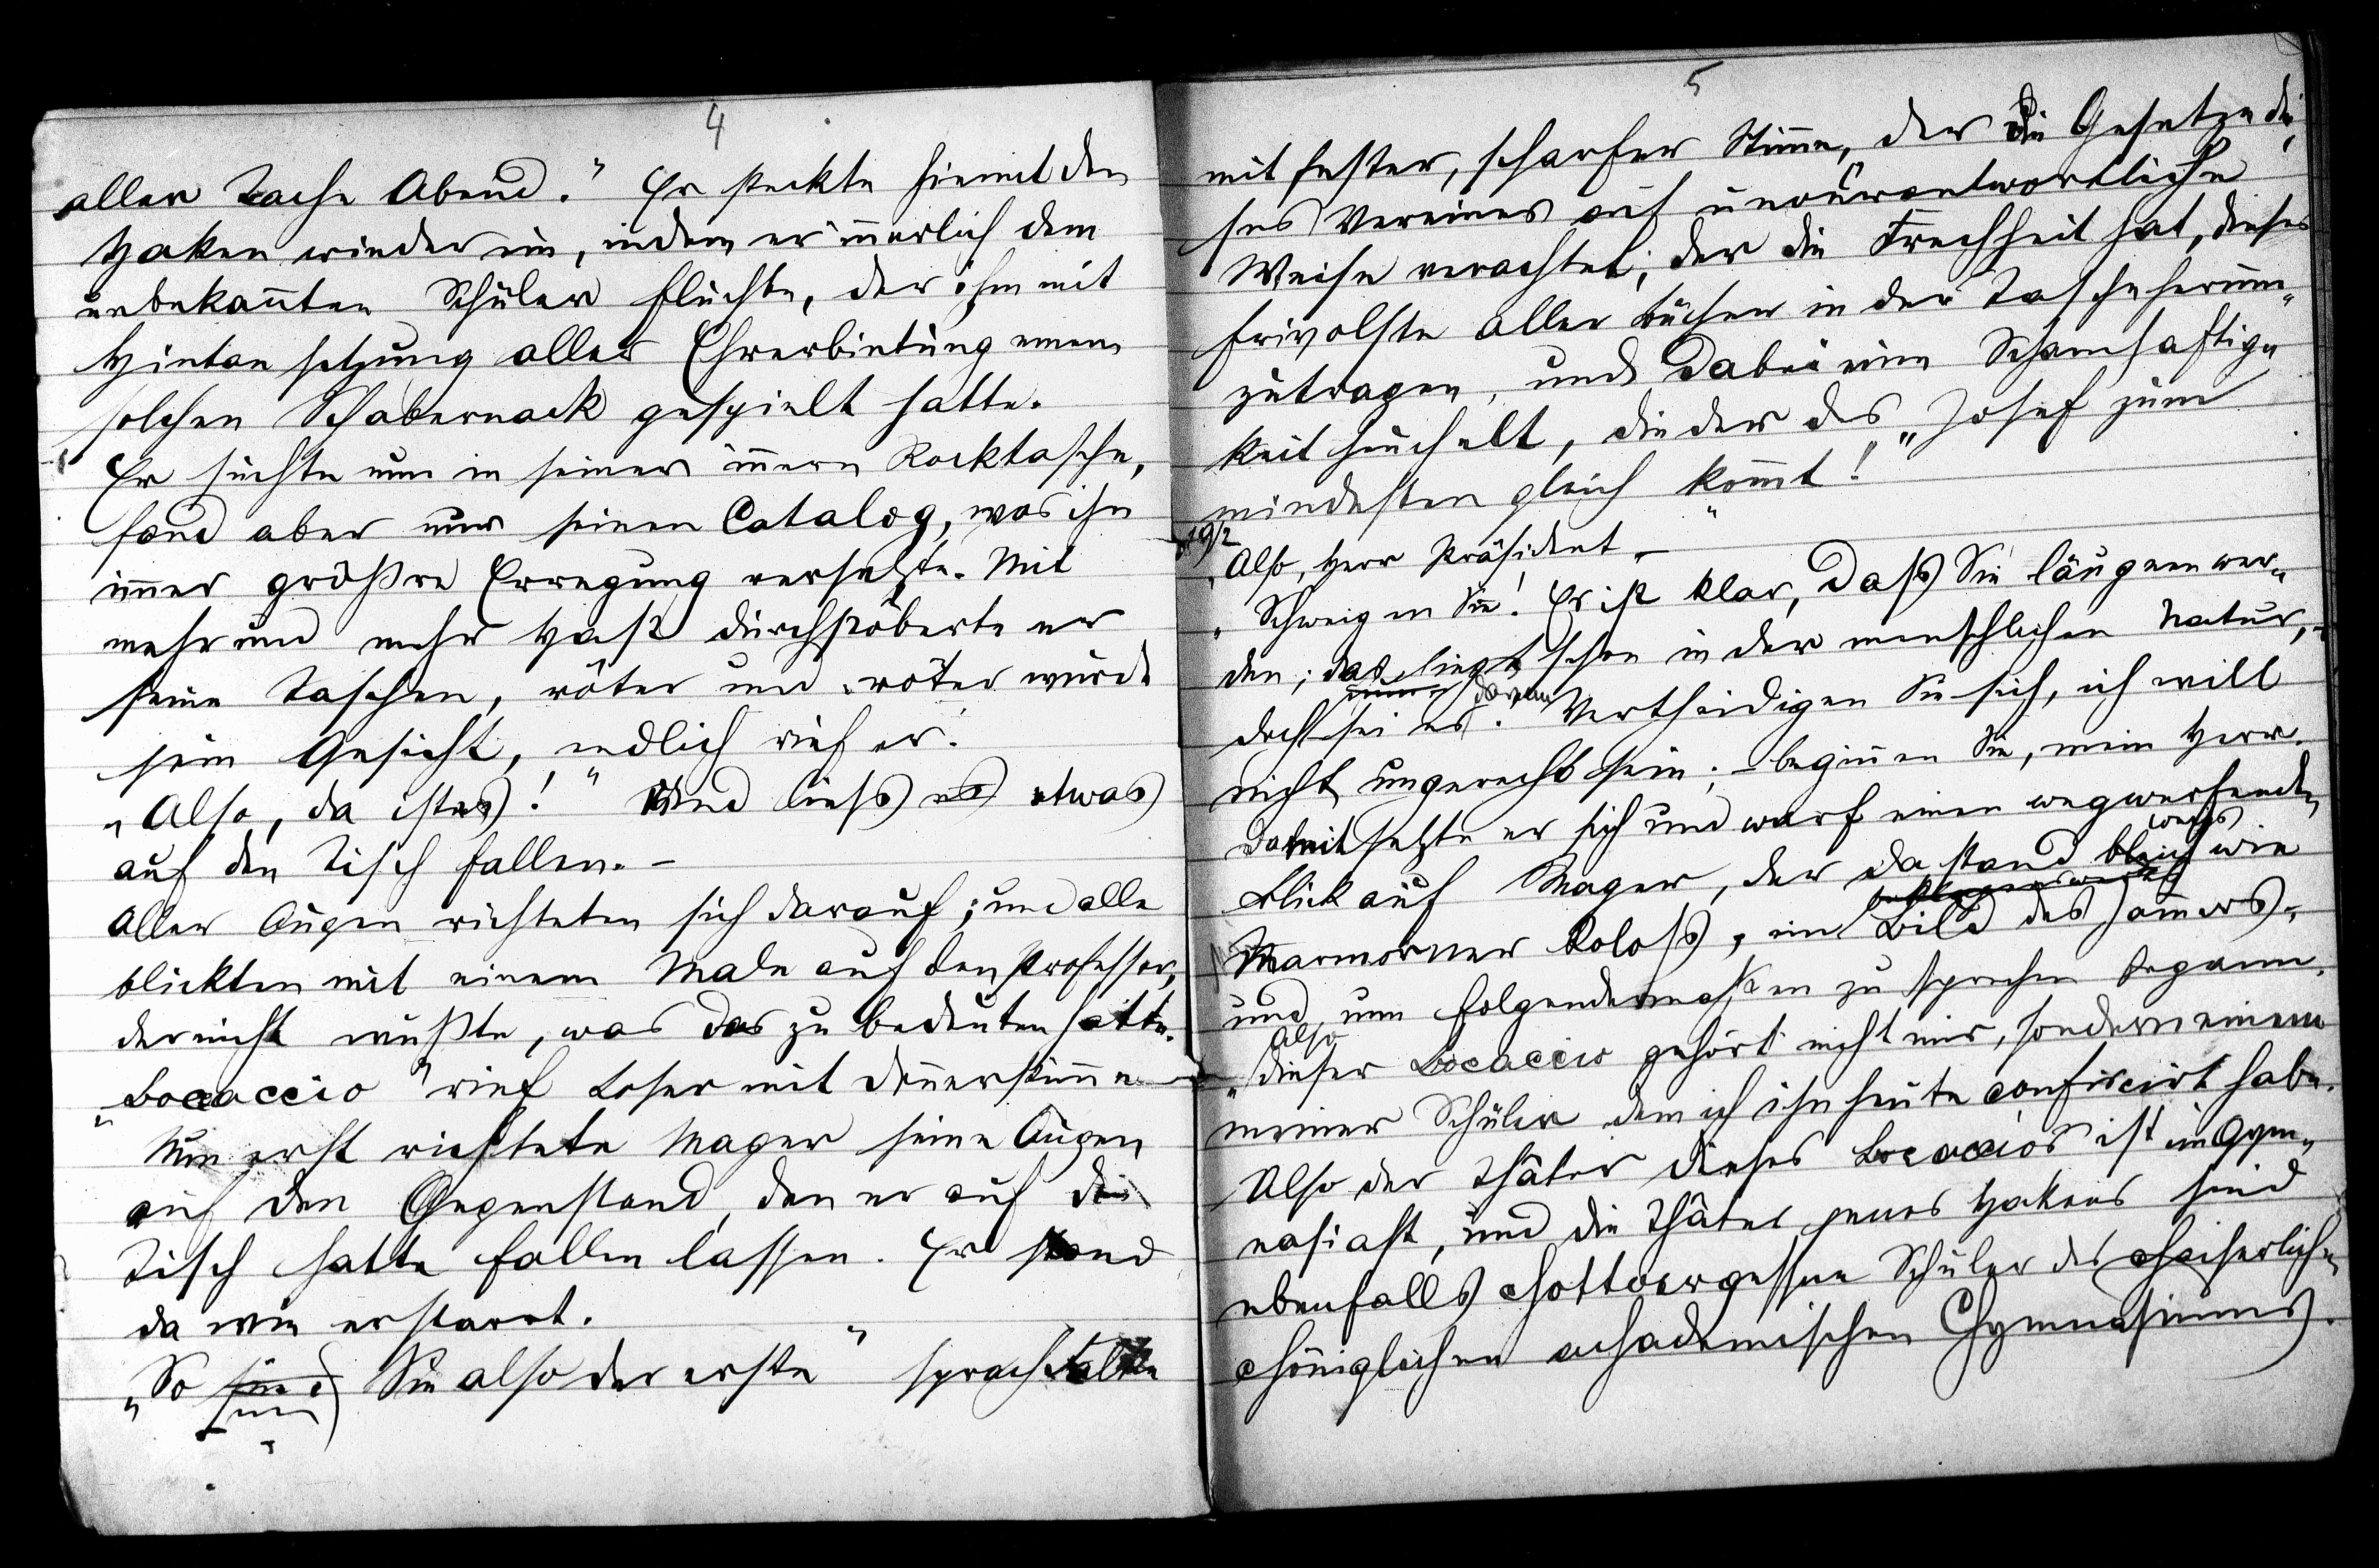 4
aller Tache Abend." Er steckte hiemit den
Haken wieder ein, indem er innerlich dem
unbekannten Schüler fluchte, der ihm mit
Hintansetzung aller Ehrerbietung einen
solchen Schabernack gespielt hatte.
Er suchte nun in seiner innern Rocktasche,
fand aber nur seinen Catalog, was ihn
immer größre Erregung versetzte. Mit
mehr und mehr Hast durchstöberte er
seine Taschen, röter und röter wurde
sein Gesicht, endlich rief er:
„Also, da ist es!" Und liess es etwas
auf den Tisch fallen. –
Aller Augen richteten sich darauf; und alle
blickten mit einem Male auf den Professor,
der nicht wußte, was das zu bedeuten hatte.
„Bocaccio" rief Loser mit Donnerstimme –
Nun erst richtete Mager seine Augen
auf den Gegenstand, den er auf den
Tisch hatte fallen lassen. Er stand
da wie erstarrt.
„So sind Sie also der erste" sprach
5
mit fester, scharfer Stimme, „der die Gesetze die
ses Vereines auf unverantwortliche
Weise verachtet; der die Frechheit hat, dieses
frivolste aller Bücher in der Tasche herum„
zutragen, und dabei eine Schamhaftig„
keit heuchelt, die der des „Josef" zum
mindesten gleich kommt!"
„Also, Herr Präsident –
„Schweigen Sie! Es ist klar, dass Sie läugnen wer„
den; das liegt schon in der menschlichen Natur, –
doch sei es. Vertheidigen Sie sich, ich will
nicht ungerecht sein; – beginnen Sie, mein Herr.
Damit setzte er sich und warf einen wegwerfenden
Blick auf Mager, der da stand bleich wie
marmorner Koloss, ein Bild des Jammers,
und nun folgendermaßen zu sprechen begann.
„Also dieser Bocaccio gehört nicht mir, sondern einem
meiner Schüler dem ich ihn heute confiscirt habe.
Also der Thäter dieses Bocaccios ist ein Gym„
nasiast, und die Thäter jenes Hakens sind
ebenfalls chottvergessne Schüler des chaiserlichen
chöniglichen achademischen Chymnasiums.